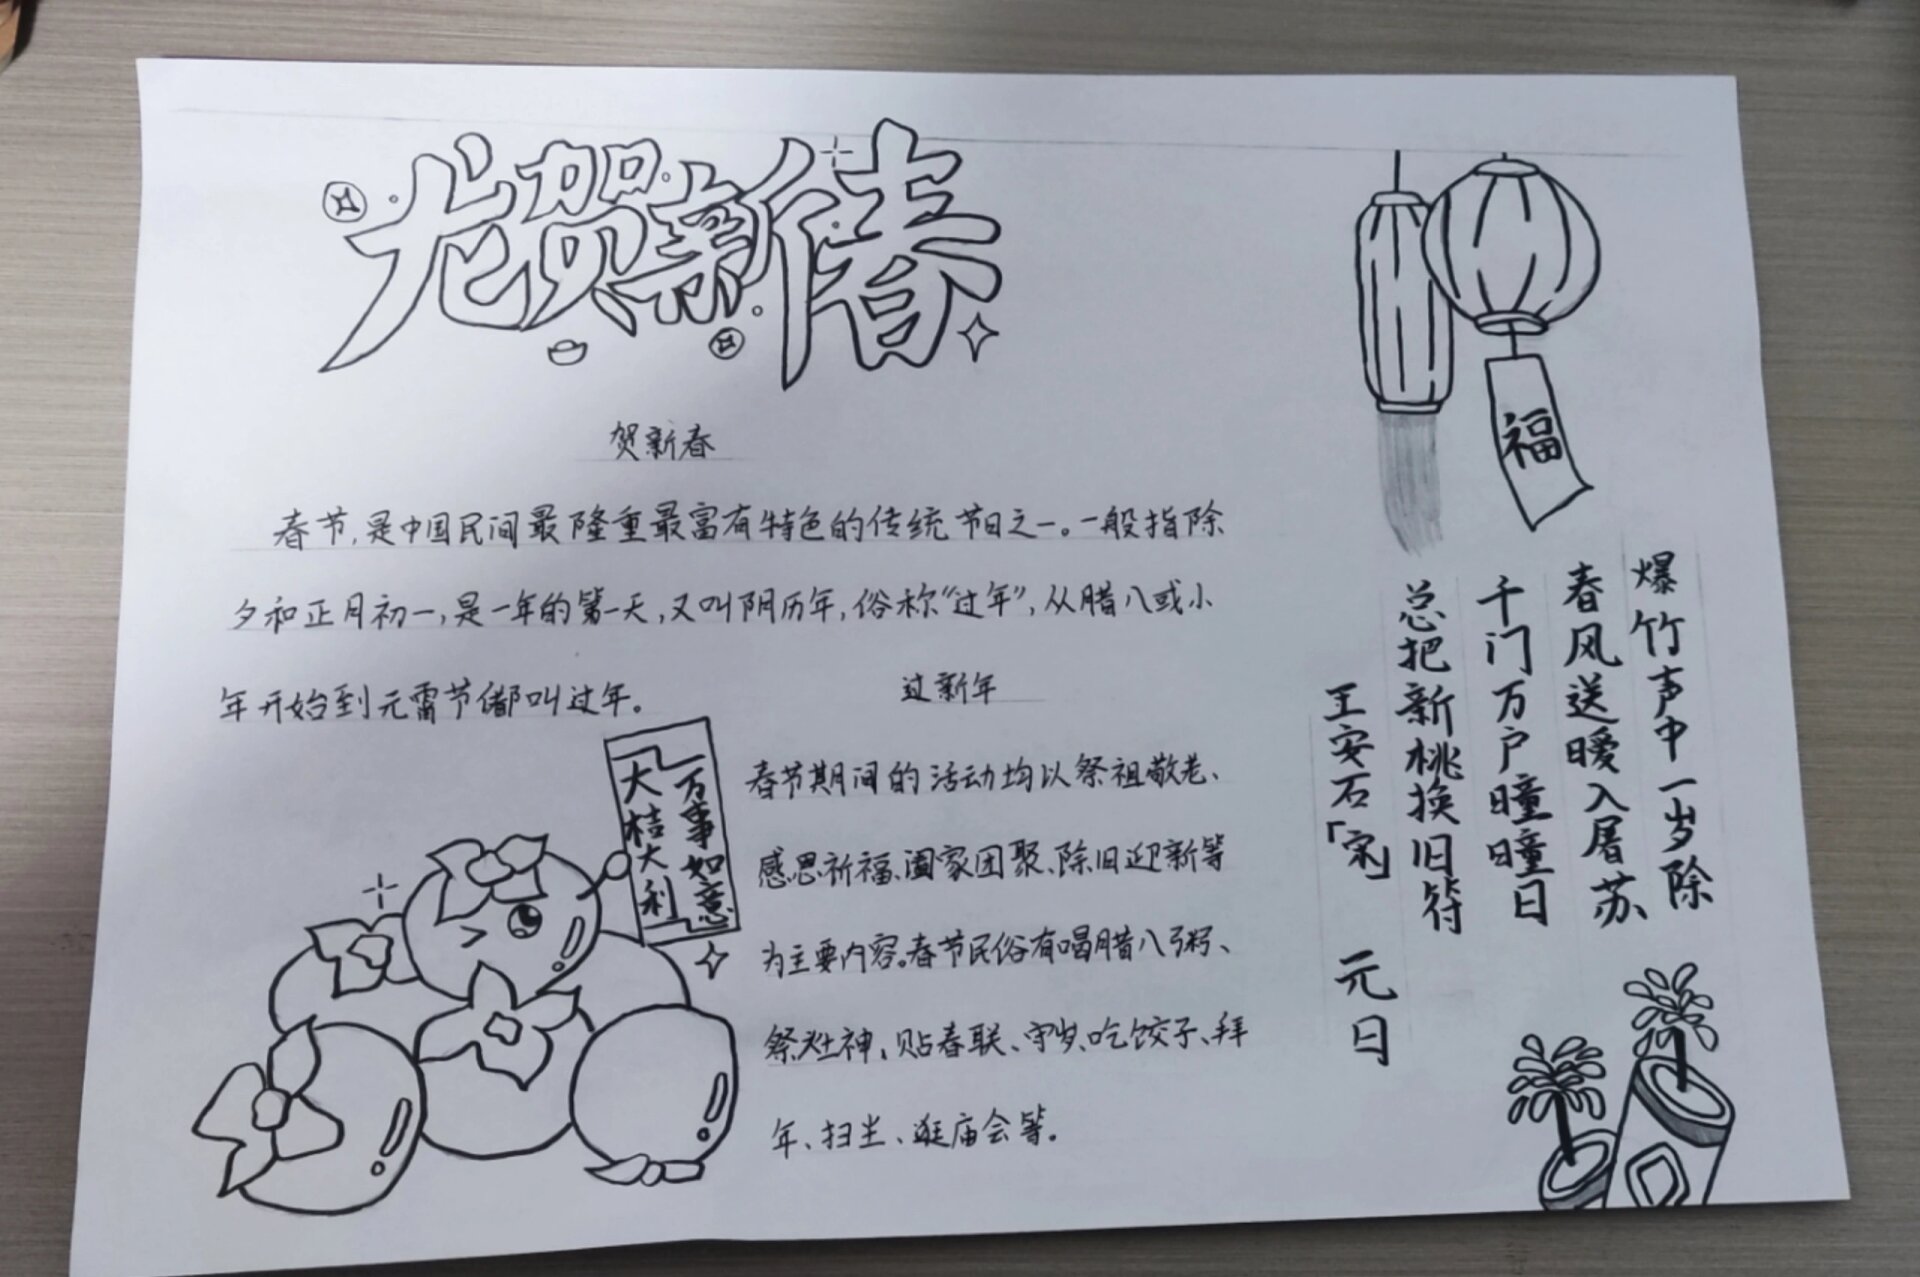 龙贺新春
贺新春
春节,是中国民间最隆重最富有特色的传统节日之一。一般指除
夕和正月初一,是一年的第一天,又叫阴历年,俗称“过年”,从腊八或小
年开始到元霄节都叫过年。
过新年
春节期间的活动均以祭祖敬老、
感恩祈福、阖家团聚、除旧迎新等
为主要内容。春节民俗有喝腊八粥、
祭灶神、贴春联、守岁、吃饺子、拜
年、扫尘、逛庙会等。
万事如意
大桔大利
福
爆竹声中一岁除
春风送暖入屠苏
千门万户曈曈日
总把新桃换旧符
王安石「宋」 元日